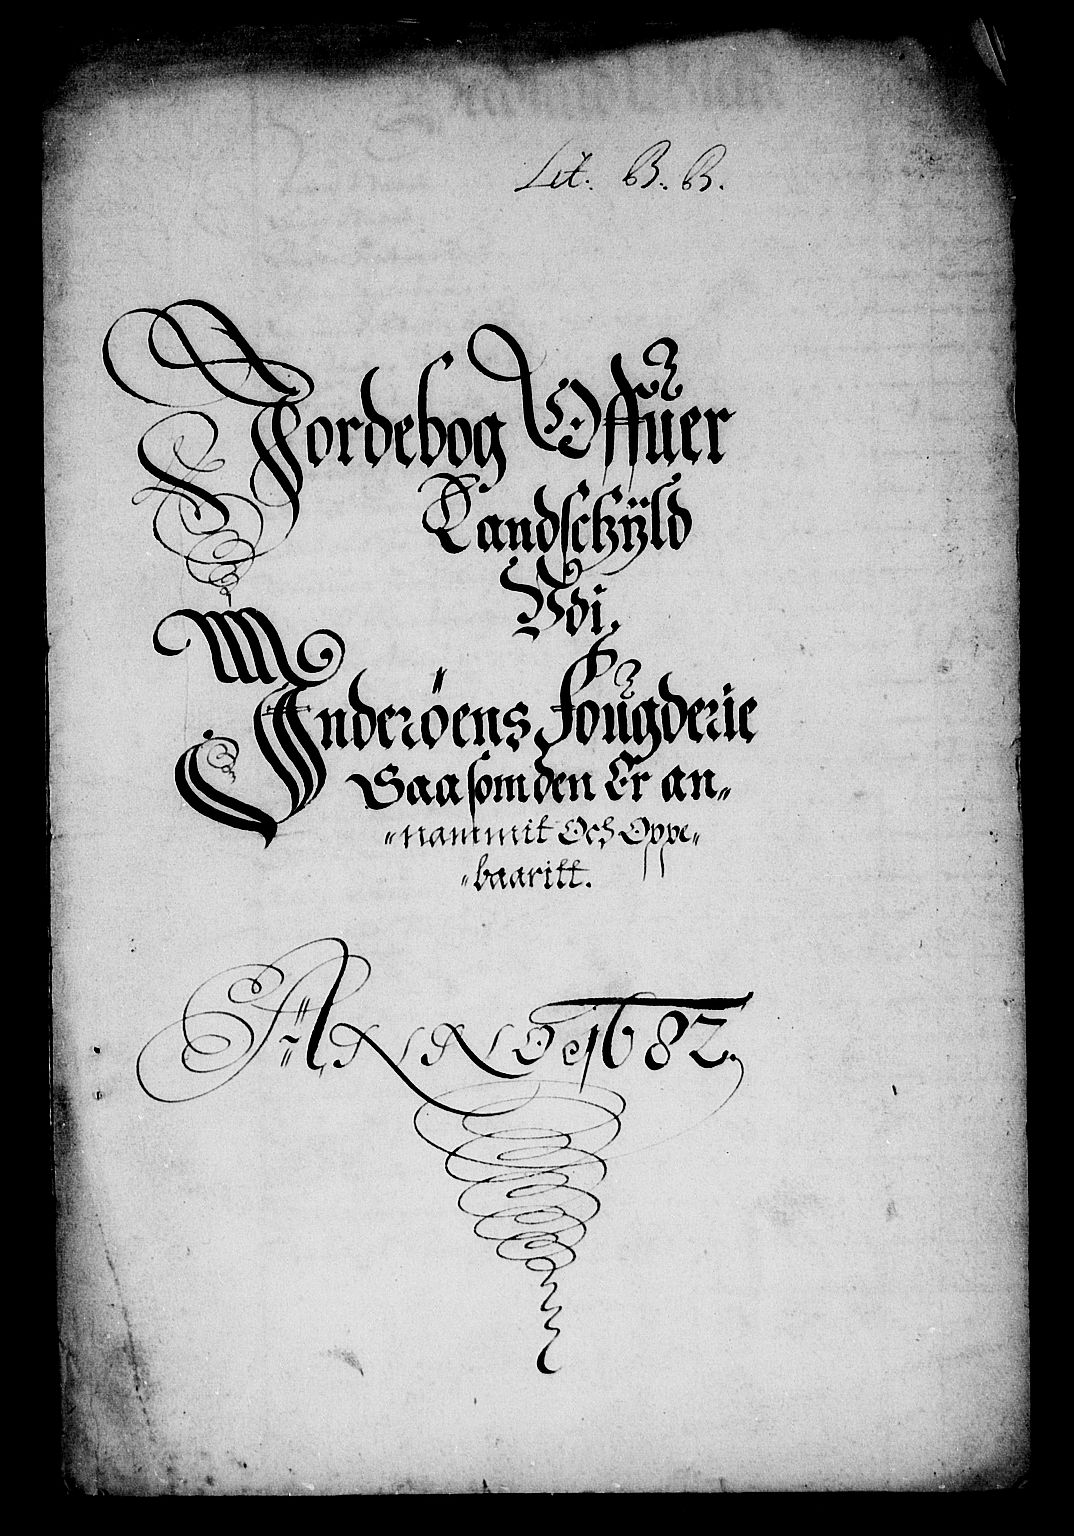 Lit: B. B.
Jordebog Offuer
Landschÿld
Vdi
Inderöens Fougderie
Saasom den Er an„
„nammit Och Oppe„
„baaritt.
ANNO 1682.